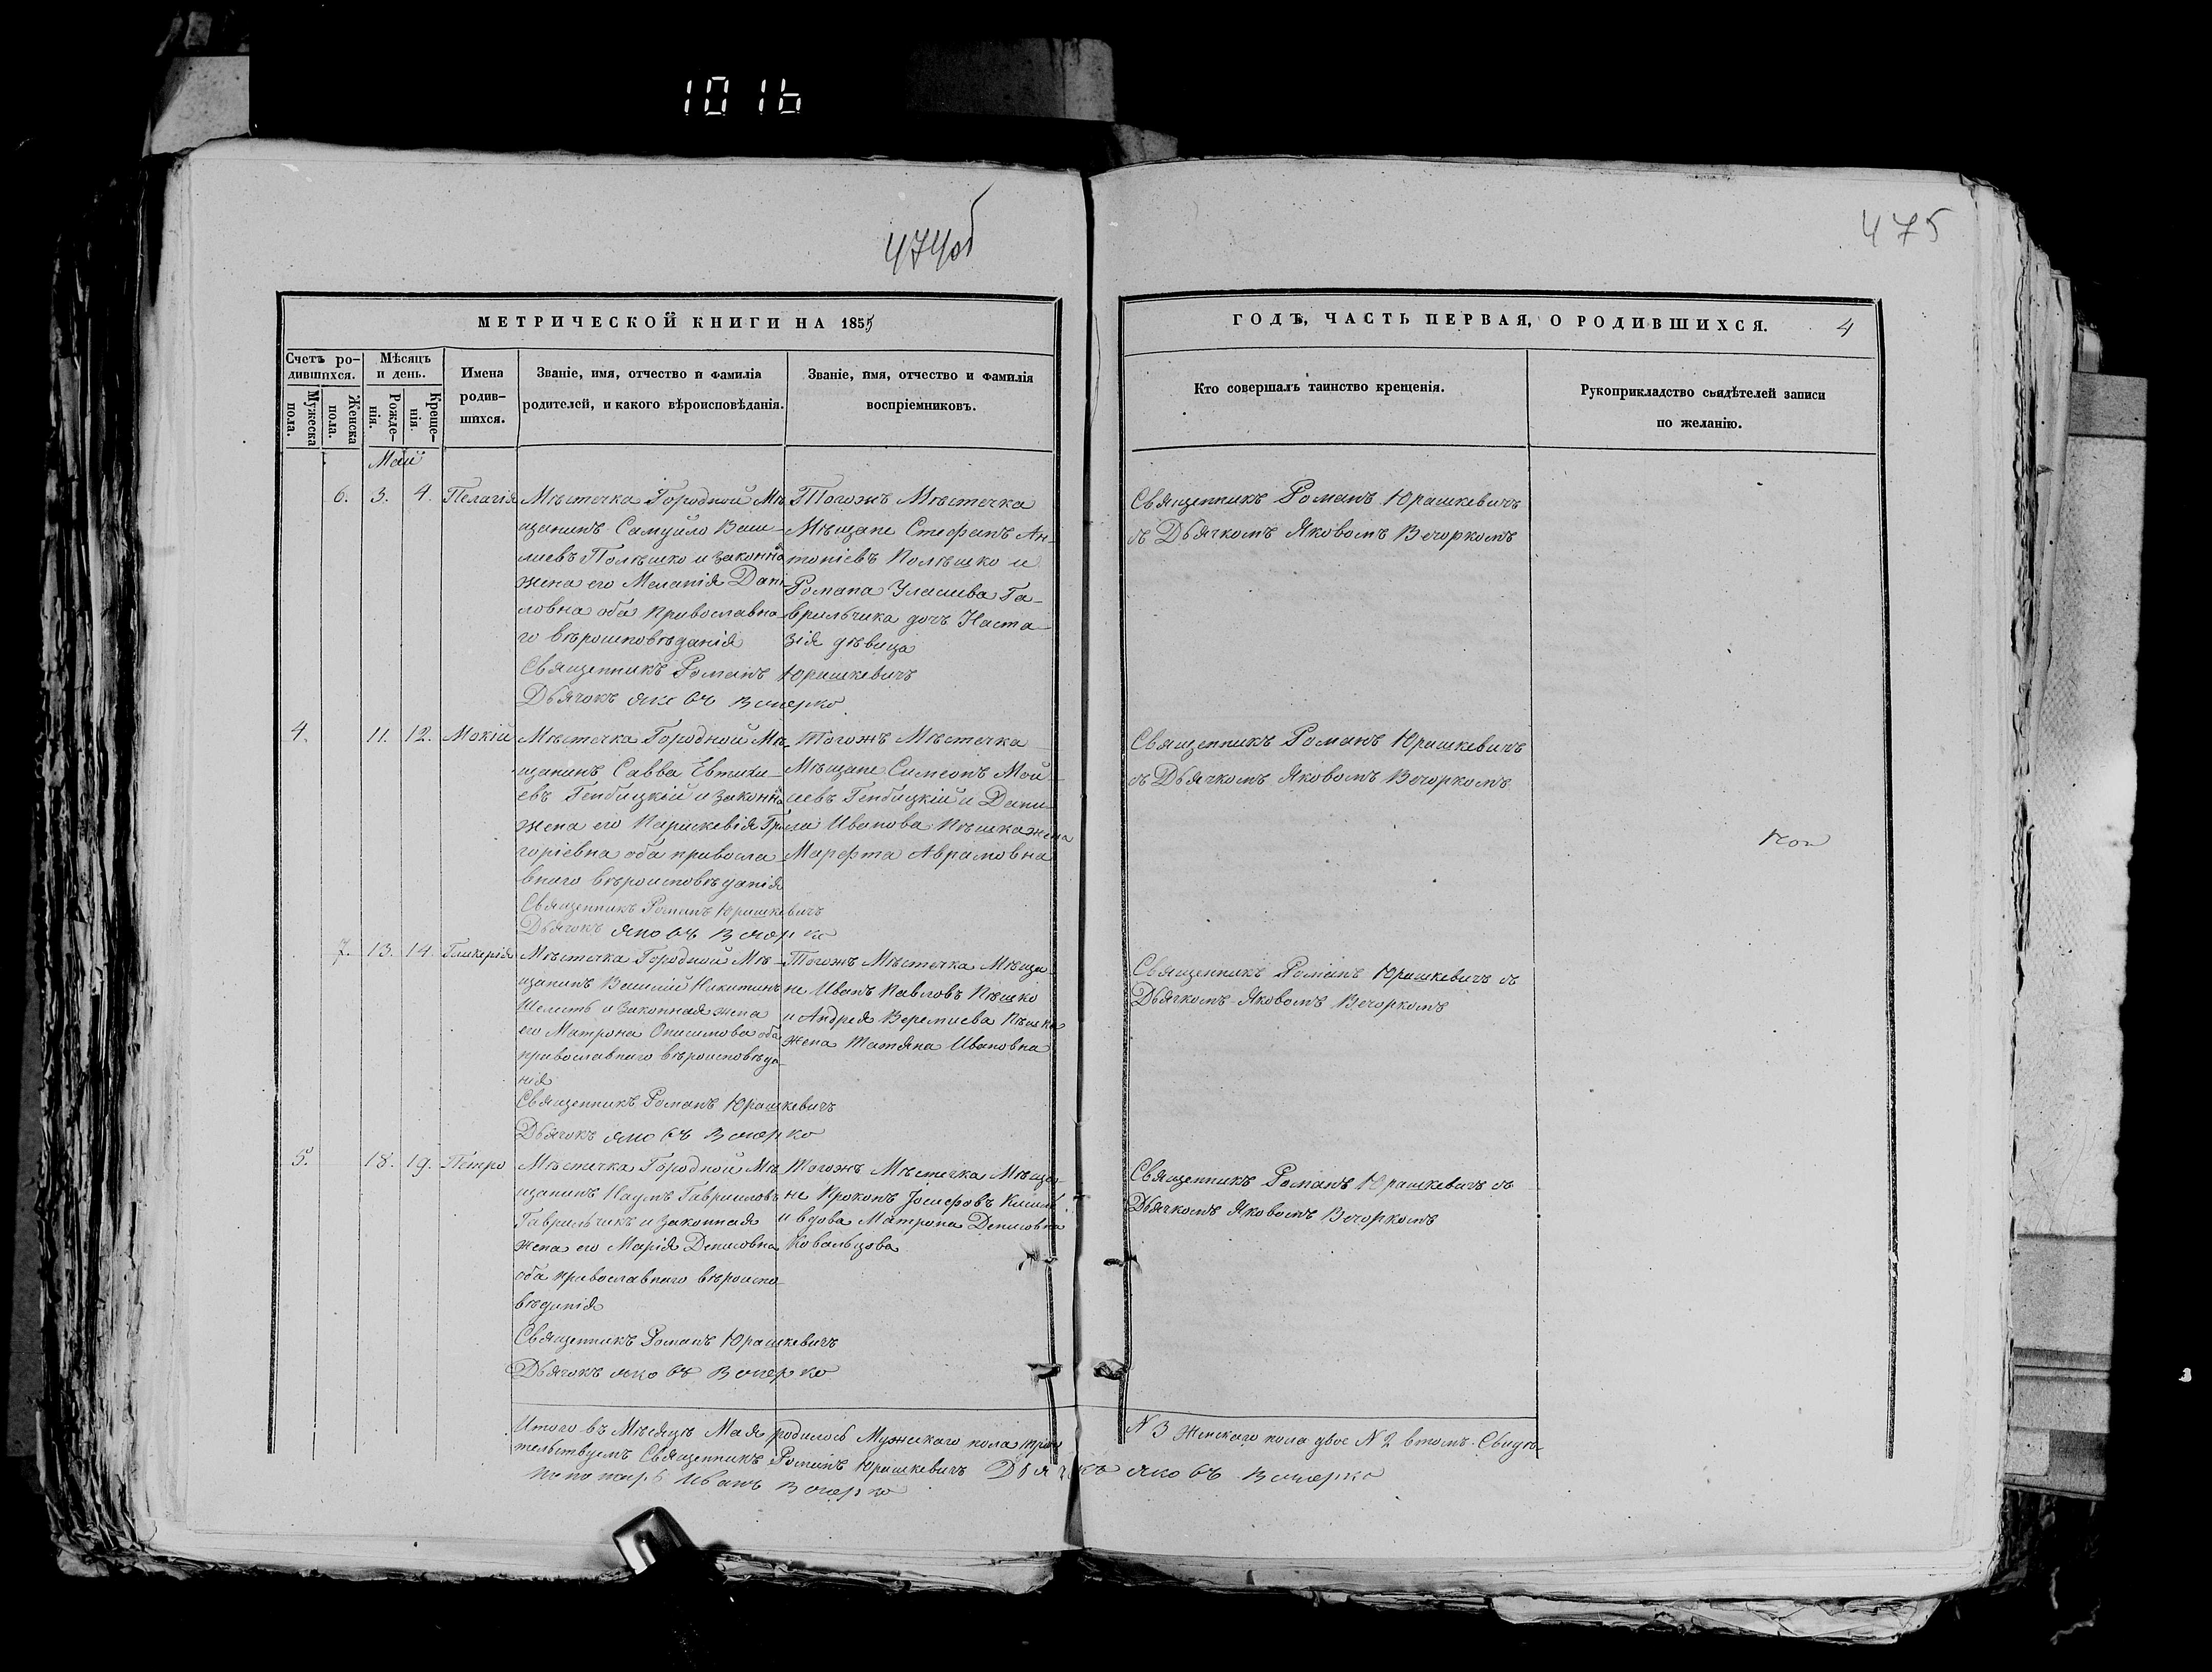 1016
474об
475
МЕТРИЧЕСКОЙ КНИГИ НА 1855
ГОДЪ, ЧАСТЬ ПЕРВАЯ, О РОДИВШИХСЯ. 4
Счетъ ро-
дившихся.
Мужеска
пола.
Женска
пола.
Мѣсяцъ
и день.
Рожде-
нія.
Креще-
нія.
Имена
родив-
шихся.
Званіе, имя, отчество и фамилія
родителей, и какого вѣроисповѣданія.
Званіе, имя, отчество и фамилія
воспріемниковъ.
Кто совершалъ таинство крещенія.
Рукоприкладство свидѣтелей записи
по желанію.
Май
6. 3. 4. Пелагія
Мѣстечка Городной Мѣ
щанинъ Самуйло Васи-
лиевъ Полѣшко и законна
жена его Меланія Дани-
ловна оба Православна-
го вѣроисповѣданія
Священникъ Романъ Юрашкевичъ
Дьячокъ Яковъ Вечерко
Тогожъ Мѣстечка
Мѣщане Стефанъ Ан-
тоніевъ Полѣшко и
Романа Уласиева Га-
врильчика дочъ Наста-
зія дѣвица
Священникъ Романъ Юрашкевичъ
съ Дьячкомъ Яковомъ Вечоркомъ
4. 11. 12. Мокій
Мѣстечка Городной Мѣ
щанинъ Савва Евтихи-
евъ Генбицкій и законна
жена его Параскевія Гри
горіевна оба правосла-
внаго вѣроисповѣданія
Священникъ Романъ Юрашкевичъ
Дьячокъ Яковъ Вечерко
Тогожъ Мѣстечка
Мѣщане Симеонъ Мои-
сиевъ Генбицкій и Дани-
ла Иванова Пѣшка жена
Марфта Аврамовна
Священникъ Романъ Юрашкевичъ
съ Дьячкомъ Яковомъ Вечоркомъ
7. 13. 14. Гликерія
Мѣстечка Городной Мѣ-
щанинъ Василій Никитинъ
Шелестъ и законная жена
его Матрона Онисимова оба
православнаго вѣроисповѣда-
нія
Священникъ Романъ Юрашкевичъ
Дьячокъ Яковъ Вечерко
Тогожъ Мѣстечка Мѣща-
не Иванъ Павловъ Пѣшко
и Андрея Веремиева Пѣшка
жена Татяна Ивановна
Священникъ Романъ Юрашкевичъ съ
Дьячкомъ Яковомъ Вечоркомъ
5. 18. 19. Петро
Мѣстечка Городной Мѣ
щанинъ Наумъ Гавриловъ
Гаврильчикъ и законная
жена его Марія Денисовна
оба православнаго вѣроиспо-
вѣданія
Священникъ Романъ Юрашкевичъ
Дьячокъ Яковъ Вечерко
Тогожъ Мѣстечка Мѣща-
не Прокопъ Іосифовъ
и вдова Матрона Денисовна
Ковальцова
Священникъ Романъ Юрашкевичъ съ
Дьячкомъ Яковомъ Вечоркомъ
Итого въ Мѣсяцѣ Маѣ родилось Мужескаго пола трое N 3 Женскаго пола двое N 2 втомъ Свидѣ-
тельствуемъ Священникъ Романъ Юрашкевичъ Дьячокъ Яковъ Вечерко
Пономарь Иванъ Вечерко